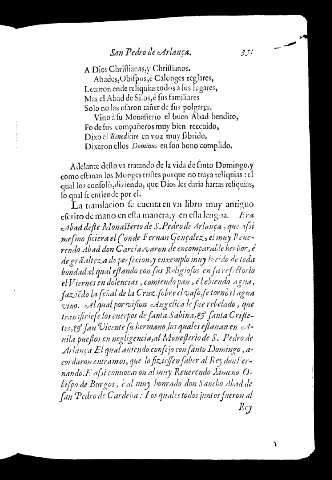 San Pedro de Arlança. 351
A Dios Christianas, y Christianos.
Abades, Obispos, è Calonges reglares,
Leuaron ende reliquias todos a sus logares,
Mas el Abad de Silos, è sus familiares
Solo no las osaron tañer de sus polgares.
Vino à su Monesterio el buen Abad bendito,
Fo de sus compañeros muy bien recebido,
Dixo el Benedicite en voz muy sabrido,
Dixeron ellos Dominus en son bono complido.
Adelante desto va tratando de la vida de santo Domingo, y
como estauan los Monges tristes porque no traya reliquias: el
qual los consoló, diziendo, que Dios les daria hartas reliquias,
lo qual se entiende por el.
La translacion se cuenta en vn libro muy antiguo
escrito de mano en esta manera, y en esta lengua. Era
Abad deste Monasterio de S. Pedro de Arlança, que assi
mesmo ficiera el Conde Fernan Gonçalez, el muy Reue-
rendo Abad don Garcia, varon de encomparable hechor, è
de grã alteza, a de perfeccion, y enxemplo muy lucido de toda
bondad, el qual estando con sus Religiosos en su refetorio
el Viernes en dolencias, comiendo pan, è bebiendo agua,
faziẽdo la señal de la Cruz sobre el vaso, se tornò el agua
vino. Al qual por vision Angelica le fue rebelado, que
transfiriesse los cuerpos de santa Sabina, & santa Criste-
tes, & san Vicente su hermano, los quales estauan en A-
uila puestos en negligencia, al Monesterio de S. Pedro de
Arlança. El qual auiendo consejo con santo Domingo, a-
cordaron entramos, que lo fiziessen saber al Rey don Fer-
nando. E assi conuocaron al muy Reuerendo Ximeno O-
bispo de Burgos, è al muy honrado don Sancho Abad de
san Pedro de Cardeña: Los quales todos juntos fueron al
Rey